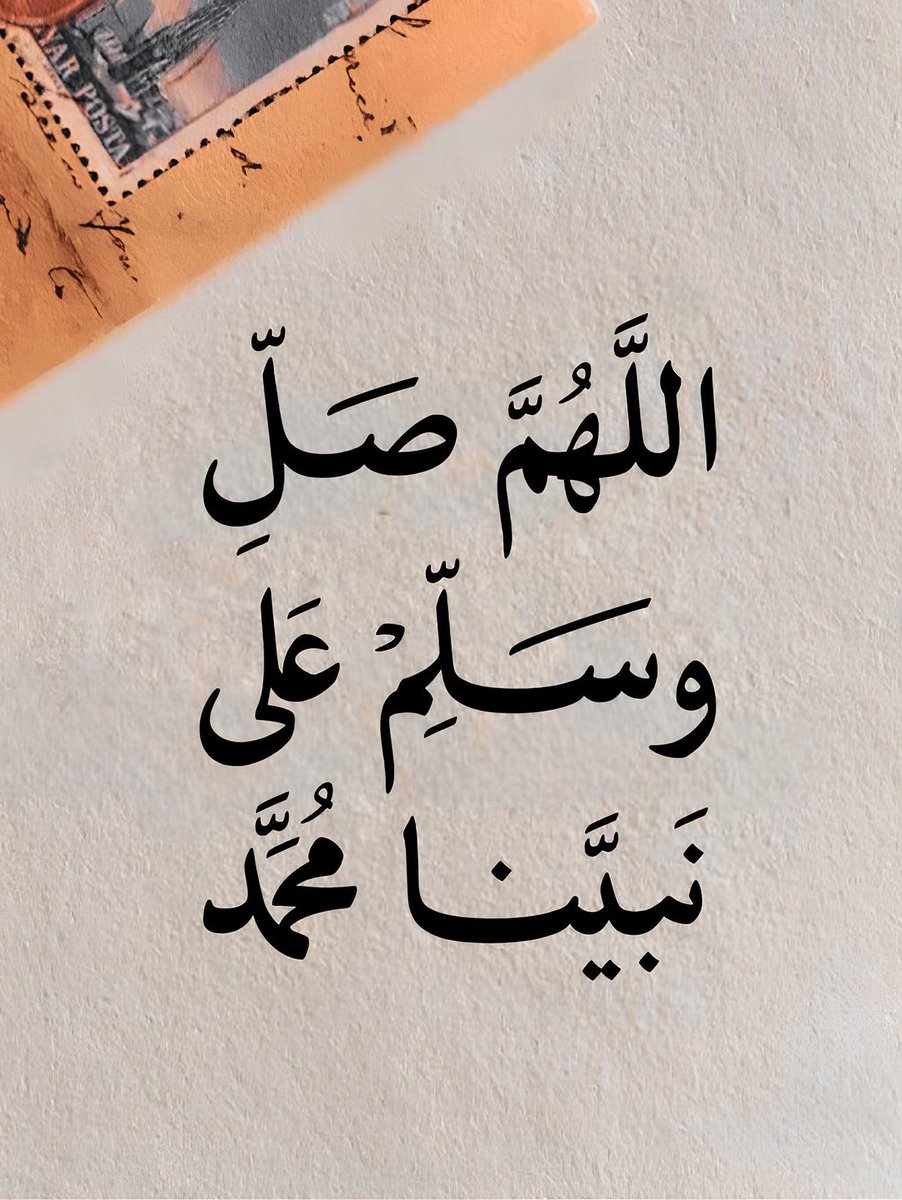 AR POSTA
You
اللَّهُمَّ صَلِّ
وسَلِّمْ عَلى
نَبيَّنا مُحمَّد